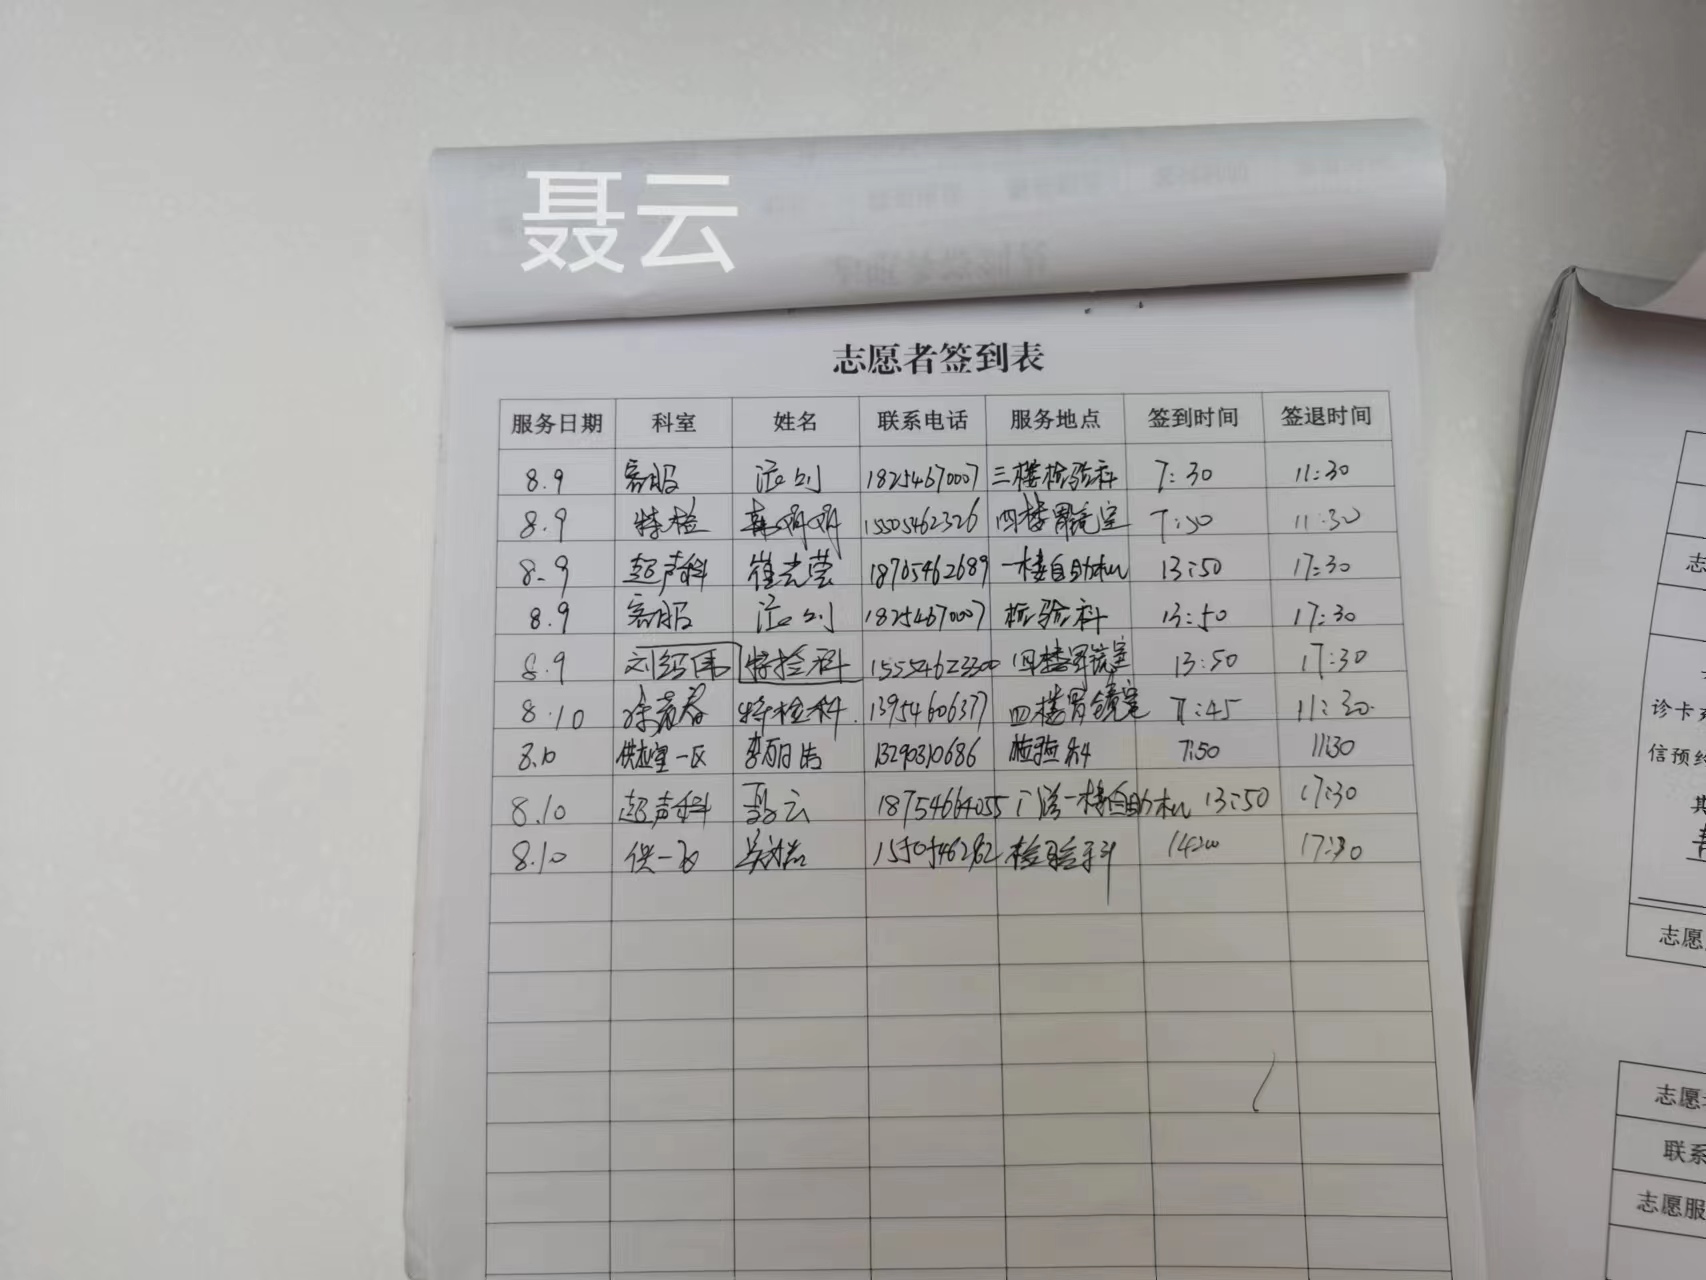 聂云
志愿者签到表
服务日期 科室 姓名 联系电话 服务地点 签到时间 签退时间
8.9 客服 18254670007 三楼检验科 7:30 11:30
8.9 特检 15505462326 四楼胃镜室 7:50 11:30
8.9 超声科 崔光莹 18705462689 一楼自助机 13:50 17:30
8.9 客服 18254670007 检验科 13:50 17:30
8.9 刘红伟 特检科 四楼胃镜室 13:50 17:30
8.10 特检科 13954606377 四楼胃镜室 7:45 11:30
8.10 一区 李丽洁 13290310686 检验科 7:50 11:30
8.10 超声科 聂云 18754664055 门诊一楼自助机 13:50 17:30
8.10 供一 检验科 17:30
志
诊卡
信预约
志愿
志愿
联系
志愿服